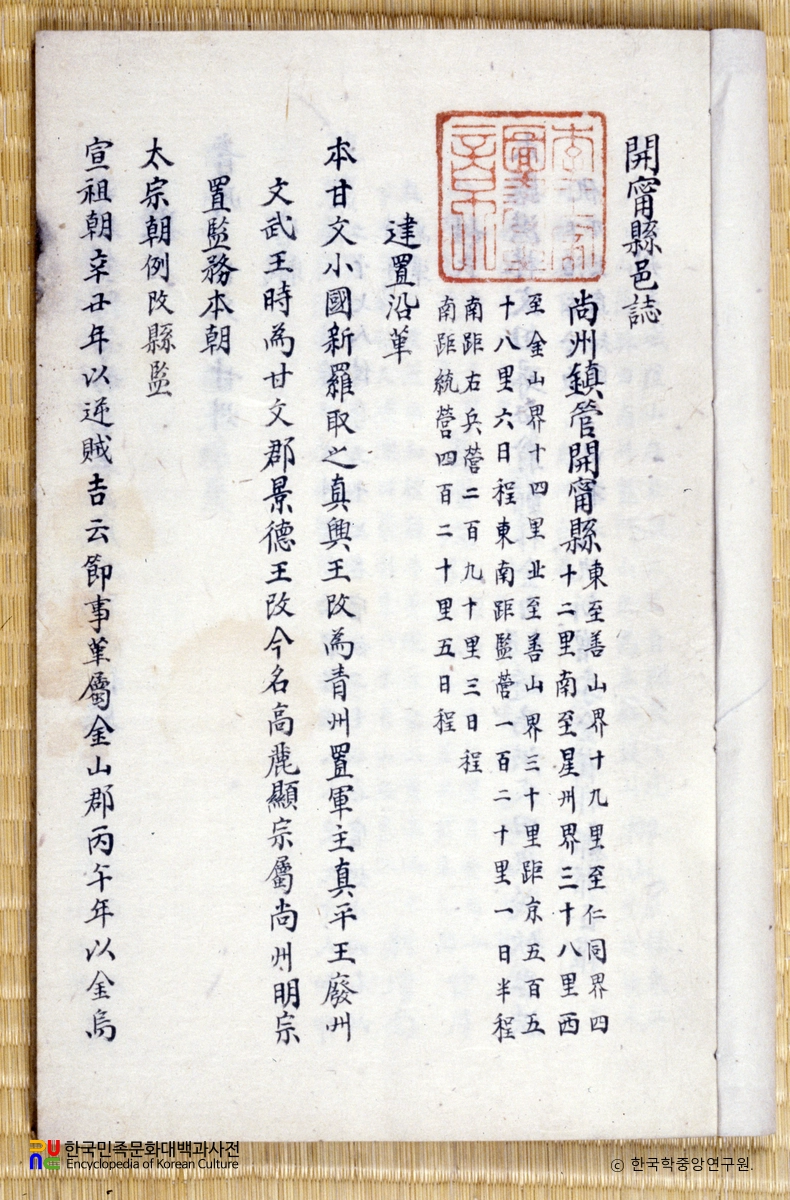 開寗縣邑誌
尚州鎮管開寗縣
東至善山界十九里至仁同界四
十二里南至星州界三十八里西
至金山界十四里北至善山界三十里距京五百五
十八里六日程東南距監營一百二十里一日半程
南距右兵營二百九十里三日程
南距統營四百二十里五日程
建置沿革
本甘文小國新羅取之真興王改為青州置軍主真平王廢州
文武王時為甘文郡景德王改今名高麗顯宗屬尚州明宗
置監務本朝
太宗朝例改縣監
宣祖朝辛丑年以逆賊吉云節事革屬金山郡丙午年以金烏
한국민족문화대백과사전
Encyclopedia of Korean Culture
ⓒ 한국학중앙연구원.